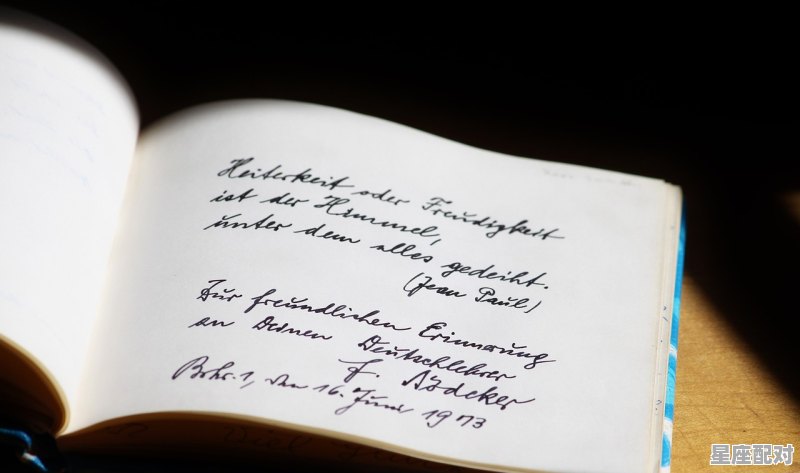 Heiterkeit oder Freudigkeit
ist der Himmel,
unter dem alles gedeiht.
(Jean Paul)
Zur freundlichen Erinnerung
an Deinen Deutschlehrer
F. Bödeker
den 16. Juni 1973
星座配对